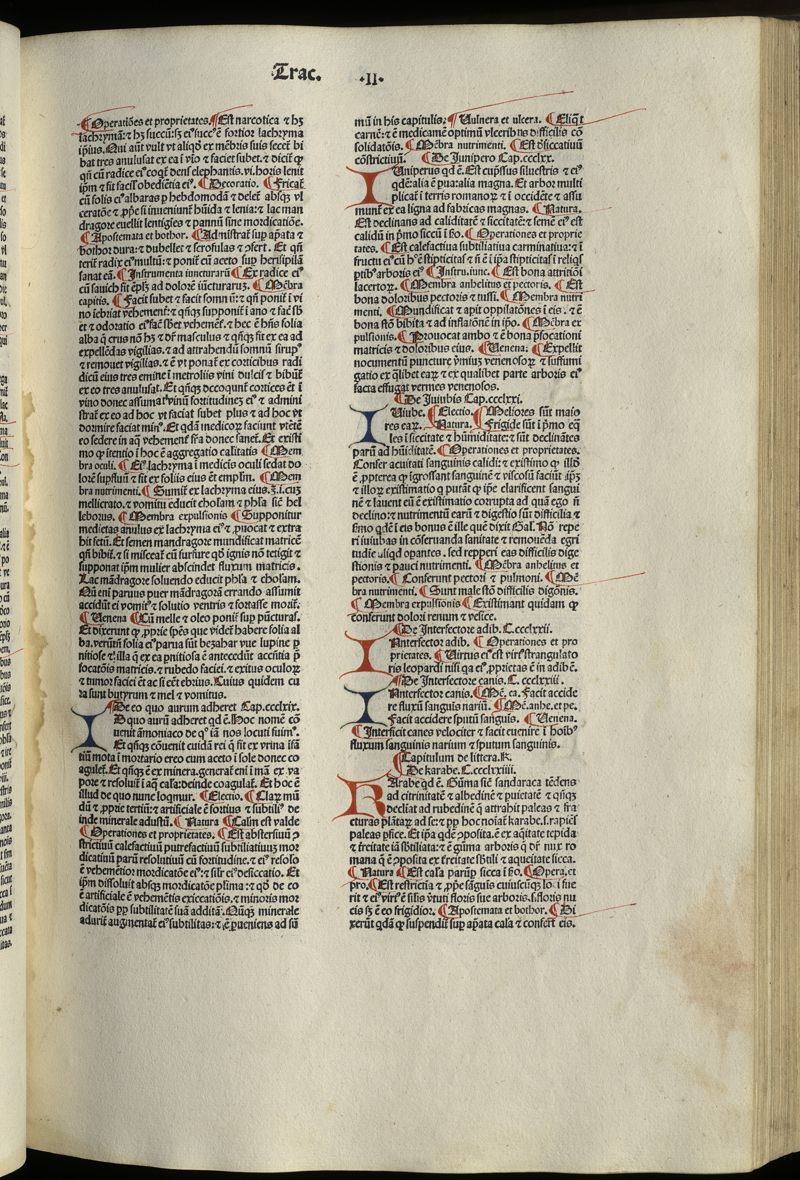 Trac. ·II·
¶Operatiões et proprietates ¶Est narcotica ⁊ hʒ
lachrymã:⁊ hʒ succũ:sʒ eiꝰ succꝰ ē fortior lachryma
ipiꝰus. Qui aũt vult vt aliqđ ex mẽbris suis secet bi
bat tres anulusat ex ea ĩ vĩo ⁊ faciet subet.
qñ cũ radice eiꝰ coqt dens elephantis.vi.horis lenit
ipm ⁊ fit facił obedietia eiꝰ. ¶Decoratio. ¶Fricat
cũ folis eiꝰ albaras p hebdomodã ⁊ delet absqꝫ vl
ceratõe
dragore euellit lentigies ⁊ pannũ sine mordicatiõe.
¶Apostemata et bothor. ¶Administrat sup apata ⁊
bothor dura:⁊ dubellet ⁊ scrofulas Et qñ
terit radix eiꝰ multũ:⁊ ponit cũ aceto sup herisipilã
sanat eã. ¶Instrumenta iuncturarũ ¶Ex radice eiꝰ
cũ sauich fit ad dolorẽ iũcturarũ. ¶Mẽbra
capitis. ¶Facit subet ⁊ facit somnũ:⁊ qñ ponit ĩ vi
no iebriat vehemẽt:⁊ qñqꝫ supponit ĩ ano ⁊
et ⁊ odoratio eiꝰ vehemẽt. ⁊ hec ē hñs folia
alba q erus nõ hʒ ⁊ dr masculus ⁊ qñqꝫ fit ex ea ad
expellẽdas vigilias.⁊ ad attrahendũ somnũ
⁊ remouet vigilias.⁊ ē vt ponat ex corticibus radi
dicũ eius tres emine ĩ metroliis vini dulcis ⁊ bibũt
ex eo tres anulusat. Et qñqꝫ decoqunt cortices
vino donec assumat vinũ fortitudinez eiꝰ ⁊ admini
strat ex eo ad hoc vt faciat subet plus ⁊ ad hoc vt
dormire faciat minꝰ. Et qdã medicor faciunt
eo sedere in aq vehemẽt donec sanet. Et existi
mo itentio ĩ hoc ē aggregatio calitatis ¶Mem
bra oculi. ¶Eiꝰ lachryma ĩ medicis oculi sedat do
lorẽ supfluũ ⁊ fit ex foliis eius ẽt emplm. ¶Mem
bra nutrimenti. ¶Sumit ex lachryma eius.
mellicrato.⁊ vomitu educit cholam ⁊ phla sic̃ hel
leborus. ¶Membra expulsionis ¶Supponitur
medietas anulus ex lachryma eiꝰ ⁊ puocat ⁊ extra
hit fetũ. Et semen mandragore mundificat matricẽ
qñ bibit.⁊ si misceat cũ surfure qđ ignis nõ tetigit ⁊
supponat ipm mulier abscindet fluxum matricis.
Lac mãdragore soluendo educit phla ⁊ cholam.
Nã eni paruus puer mãdragorã errando assumit
accidũt ei vomitꝰ ⁊ solutio ventris ⁊ fortasse morit.
¶Venena ¶Cũ melle ⁊ oleo ponit sup pũcturas.
Et dixerunt qꝫ pprie spẽs que videt habere folia al
ba.verũtñ folia eiꝰ parua sũt bezahar vue lupine p
nitiose ⁊ illa q ex ea pnitiosa ē antecedũt accñtia p
focatõis matricis.⁊ rubedo faciei.⁊ exitus oculor
⁊ tumor faciei ẽt ac si eēt ebrius. Cuius quidem cu
ra sunt butyrum ⁊ mel ⁊ vomitus.
¶De eo quo aurum adheret Cap.cccclxix.
ID quo aurũ adheret qd ē. Hoc nomẽ cõ
uenit ãmoniaco de qꝰ iã nos locuti fuimꝰ.
Et qñqꝫ cõuenit cuidã rei q fit ex vrina ĩfã
tiũ mota ĩ mortario ereo cum aceto ĩ sole donec co
agulet. Et qñqꝫ ē ex minera.generat eni ĩ mã ex va
pore ⁊ resoluit ĩ aq cala:deinde coagulat. Et hoc ē
illud de quo nunc loqmur. ¶Electio. ¶Clar mũ
dũ ⁊ pprie tertiũ:⁊ artificiale ē fortius ⁊ subtiliꝰ de
inde minerale adustũ. ¶Natura ¶Calm est valde
¶Operationes et proprietates. ¶Est abstersiuũ ɔ
strictiuũ calefactiuũ putrefactiuũ subtiliatiuuʒ mor
dicatiuũ parũ resolutiuũ cũ fortitudine.⁊ eiꝰ resolo
ē vehemẽtior mordicatõe eiꝰ:⁊ silr eiꝰ desiccatio. Et
ipm dissoluit absqꝫ mordicatõe plima:⁊ qđ de eo
ē artificiale ē vehemẽtis exiccatiõis.⁊ minoris mor
dicatõis pp subtilitatẽ suã additã. Nũqꝫ minerale
adurit augmentat eiꝰ subtilitas:⁊ ē pueniens ad sũ
mũ in his capitulis: ¶Vulnera et vlcera. ¶Eliqt
carnẽ:⁊ ē medicamẽ optimũ vlceribus difficilis cõ
solidatõis. ¶Mẽbra nutrimenti. ¶Est dsiccatiuũ
cõstrictiuũ. ¶De Junipero Cap.cccclxx.
IUniperus qd ē. Est cupssus siluestris ⁊ eiꝰ
qdẽ:alia ē pua:alia magna. Et arbor multi
plicat ĩ terris romanor ⁊ ĩ occidẽte ⁊ assu
munt ex ea ligna ad fabricas magnas. ¶Natura.
Est declinans ad caliditatẽ ⁊ siccitatẽ:⁊ semẽ eiꝰ est
calidũ in pmo siccũ ĩ ſcdo. ¶Operationes et proprie
tates. ¶Est calefactiua subtiliatiua carminatiua:⁊ ĩ
fructu eiꝰ cũ hꝰ ē stipticitas ⁊ ñ ē ĩ ipa stipticitas ĩ reliqs
ptibꝰ arboris eiꝰ ¶Instru.iunc. ¶Est bona attritiõi
lacertor. ¶Membra anhelitus et pectoris. ¶Est
bona doloribus pectoris ⁊ tussi. ¶Membra nutri
menti. ¶Mundificat ⁊ apit oppilatões ĩ eis.⁊ ē
bona sto bibita ⁊ ad inflatõnẽ in ipo. ¶Mẽbra ex
pulsionis. ¶Prouocat ambo ⁊ ē bona pfocationi
matricis ⁊ doloribus eius. ¶Venena: ¶Expellit
nocumentũ puncture vmiuʒ venenosor ⁊ suffumi
gatio ex qlibet ear ⁊ ex qualibet parte arboris eiꝰ
facta effugat vermes venenosos.
¶De Juiubis Cap.cccclxxi.
IUiube. ¶Electio. ¶Meliores sũt maio
res ear. ¶Natura. ¶Frigide sũt ĩ pmo eq
les ĩ siccitate ⁊ hũmiditate:⁊ sũt declinãtes
parũ ad hũiditatẽ. ¶Operationes et proprietates.
Confer acuitati sanguinis calidi:⁊ existimo qꝫ illđ
ē ppterea qꝫ īgrossant sanguinẽ ⁊ viscosũ faciũt ipʒ
⁊ illoʒ existimatio q putãt qꝫ ipe clarificent sangui
nẽ ⁊ lauent eũ ē existimatio corrupta ad quã ego ñ
declino:⁊ nutrimentũ earũ ⁊ digestio sũt difficilia ⁊
sermo qđẽ ĩ eis bonus ē ille quẽ dixit Gal. Nõ repe
ri iuiubas in cõseruanda sanitate ⁊ remouẽda egri
tudie aliqđ opantes.sed repperi eas difficilis dige
stionis ⁊ pauci nutrimenti. ¶Mẽbra anhelitus et
pectoris. ¶Conferunt pectori ⁊ pulmoni. ¶Mẽ
bra nutrimenti. ¶Sunt male sto difficilis digõnis.
¶Membra expulsionis ¶Existimant quidam qꝫ
conferunt dolori renum ⁊ vesice.
¶De Interfectore adib. C.cccclxxii.
INterfector adib. ¶Operationes et pro
prietates. ¶Virtus eiꝰ est vt strangulato
ris leopardi nisi qa eiꝰ pprietas ē in adib ē.
¶De Interfectore canis. C.cccclxxiii.
INterfector canis. ¶Mẽ.ca. Facit accide
re fluxũ sanguis nariũ. ¶Mẽ.anhe.et pe.
Facit accidere sputũ sanguis. ¶Venena.
¶Interficit canes velociter ⁊ facit euenire ĩ hoibꝰ
fluxum sanguinis narium ⁊ sputum sanguinis.
¶Capitulum de littera.K.
¶De karabe. C.cccclxxiiii.
KArabe qd ē. Gũma sic̃ sandaraca tẽdens
ad citrinitatẽ ⁊ albedinẽ ⁊ puietatẽ ⁊ qñqꝫ
decliat ad rubedinẽ q attrahit paleas ⁊ fra
cturas plãtaʒ ad se:⁊ pp hoc noiat karabe.s.rapiẽs
paleas psice. Et ipa qdẽ ɔposita.ē ex aqitate tepida
⁊ treitate iã sbtiliata:⁊ ē gũma arboris q dr nux ro
mana q ē ɔposita ex treitate sbtili ⁊ aqueitate sicca.
¶Natura ¶Est cala parũp sicca ĩ ſcdo. ¶Opera.et
pro. ¶Est restrictiua ⁊ pprie sãguis cuiuscũqꝫ loci fue
rit ⁊ eiꝰ virtꝰ ē silis vtuti floris sue arboris.s.floris nu
cis sʒ ē eo frigidior. ¶Apostemata et bothor. ¶Di
xerũt qdã qꝫ suspendit sup apata cala ⁊ confert eis.